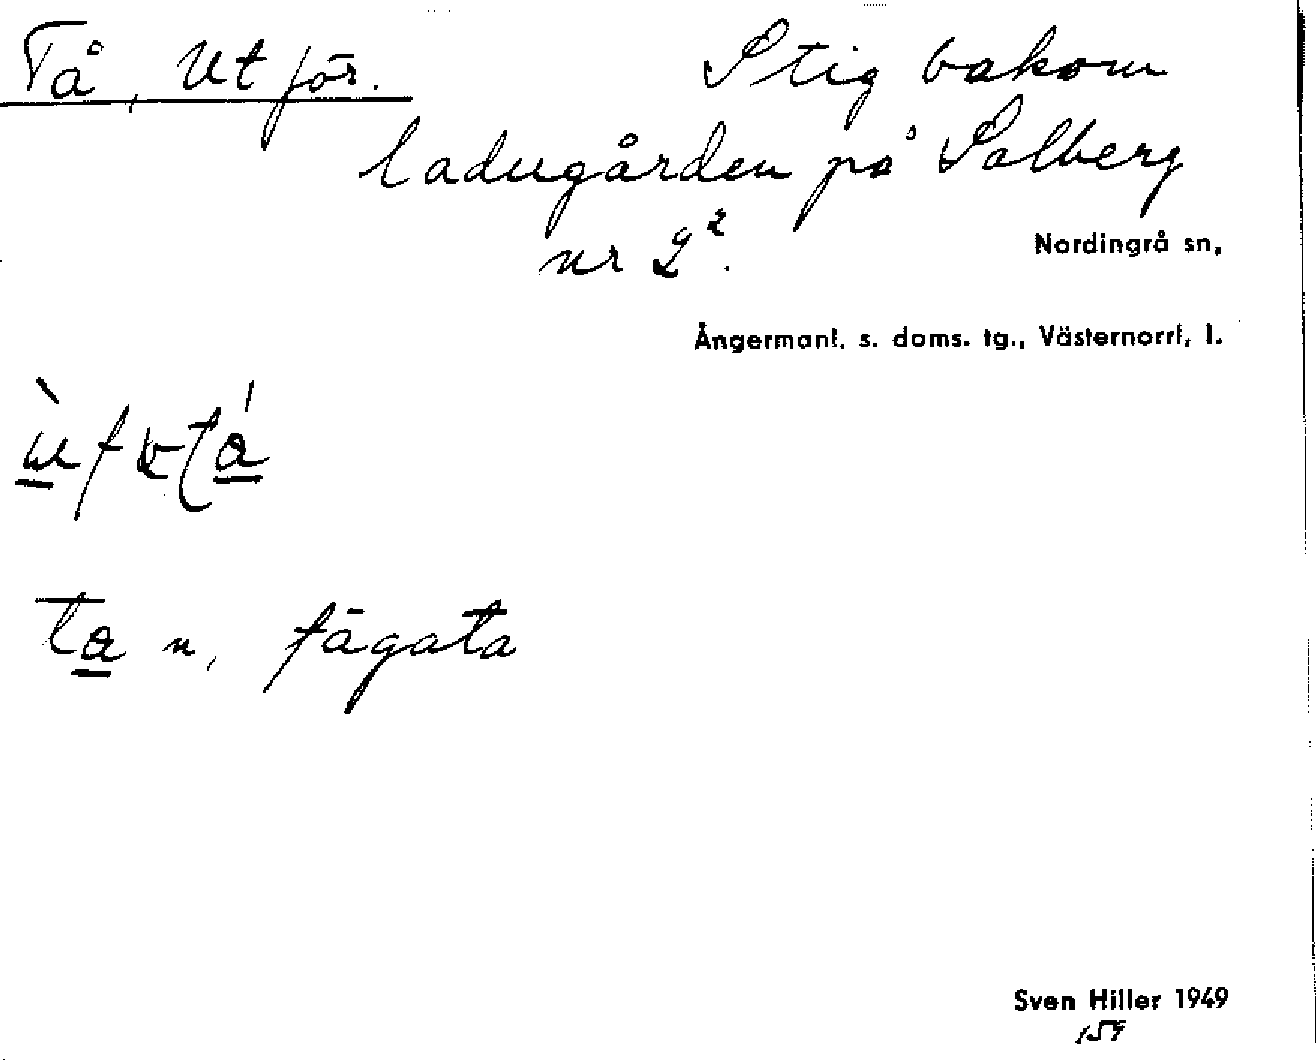 Tå, Utför. Stig bakom
ladugården på Salberg
nr 2².
Nordingrå sn,
Ångermanl. s. doms. tg., Västernorrl. l.
ta n, fägata
Sven Hiller 1949